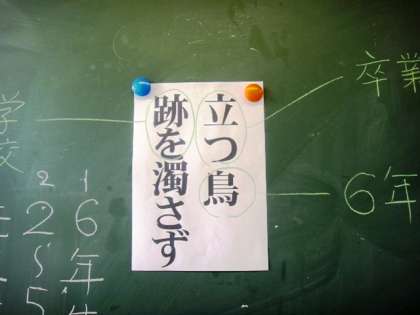 卒業
6年
立つ鳥
跡を濁さず
学校
1
6年
2
2〜5